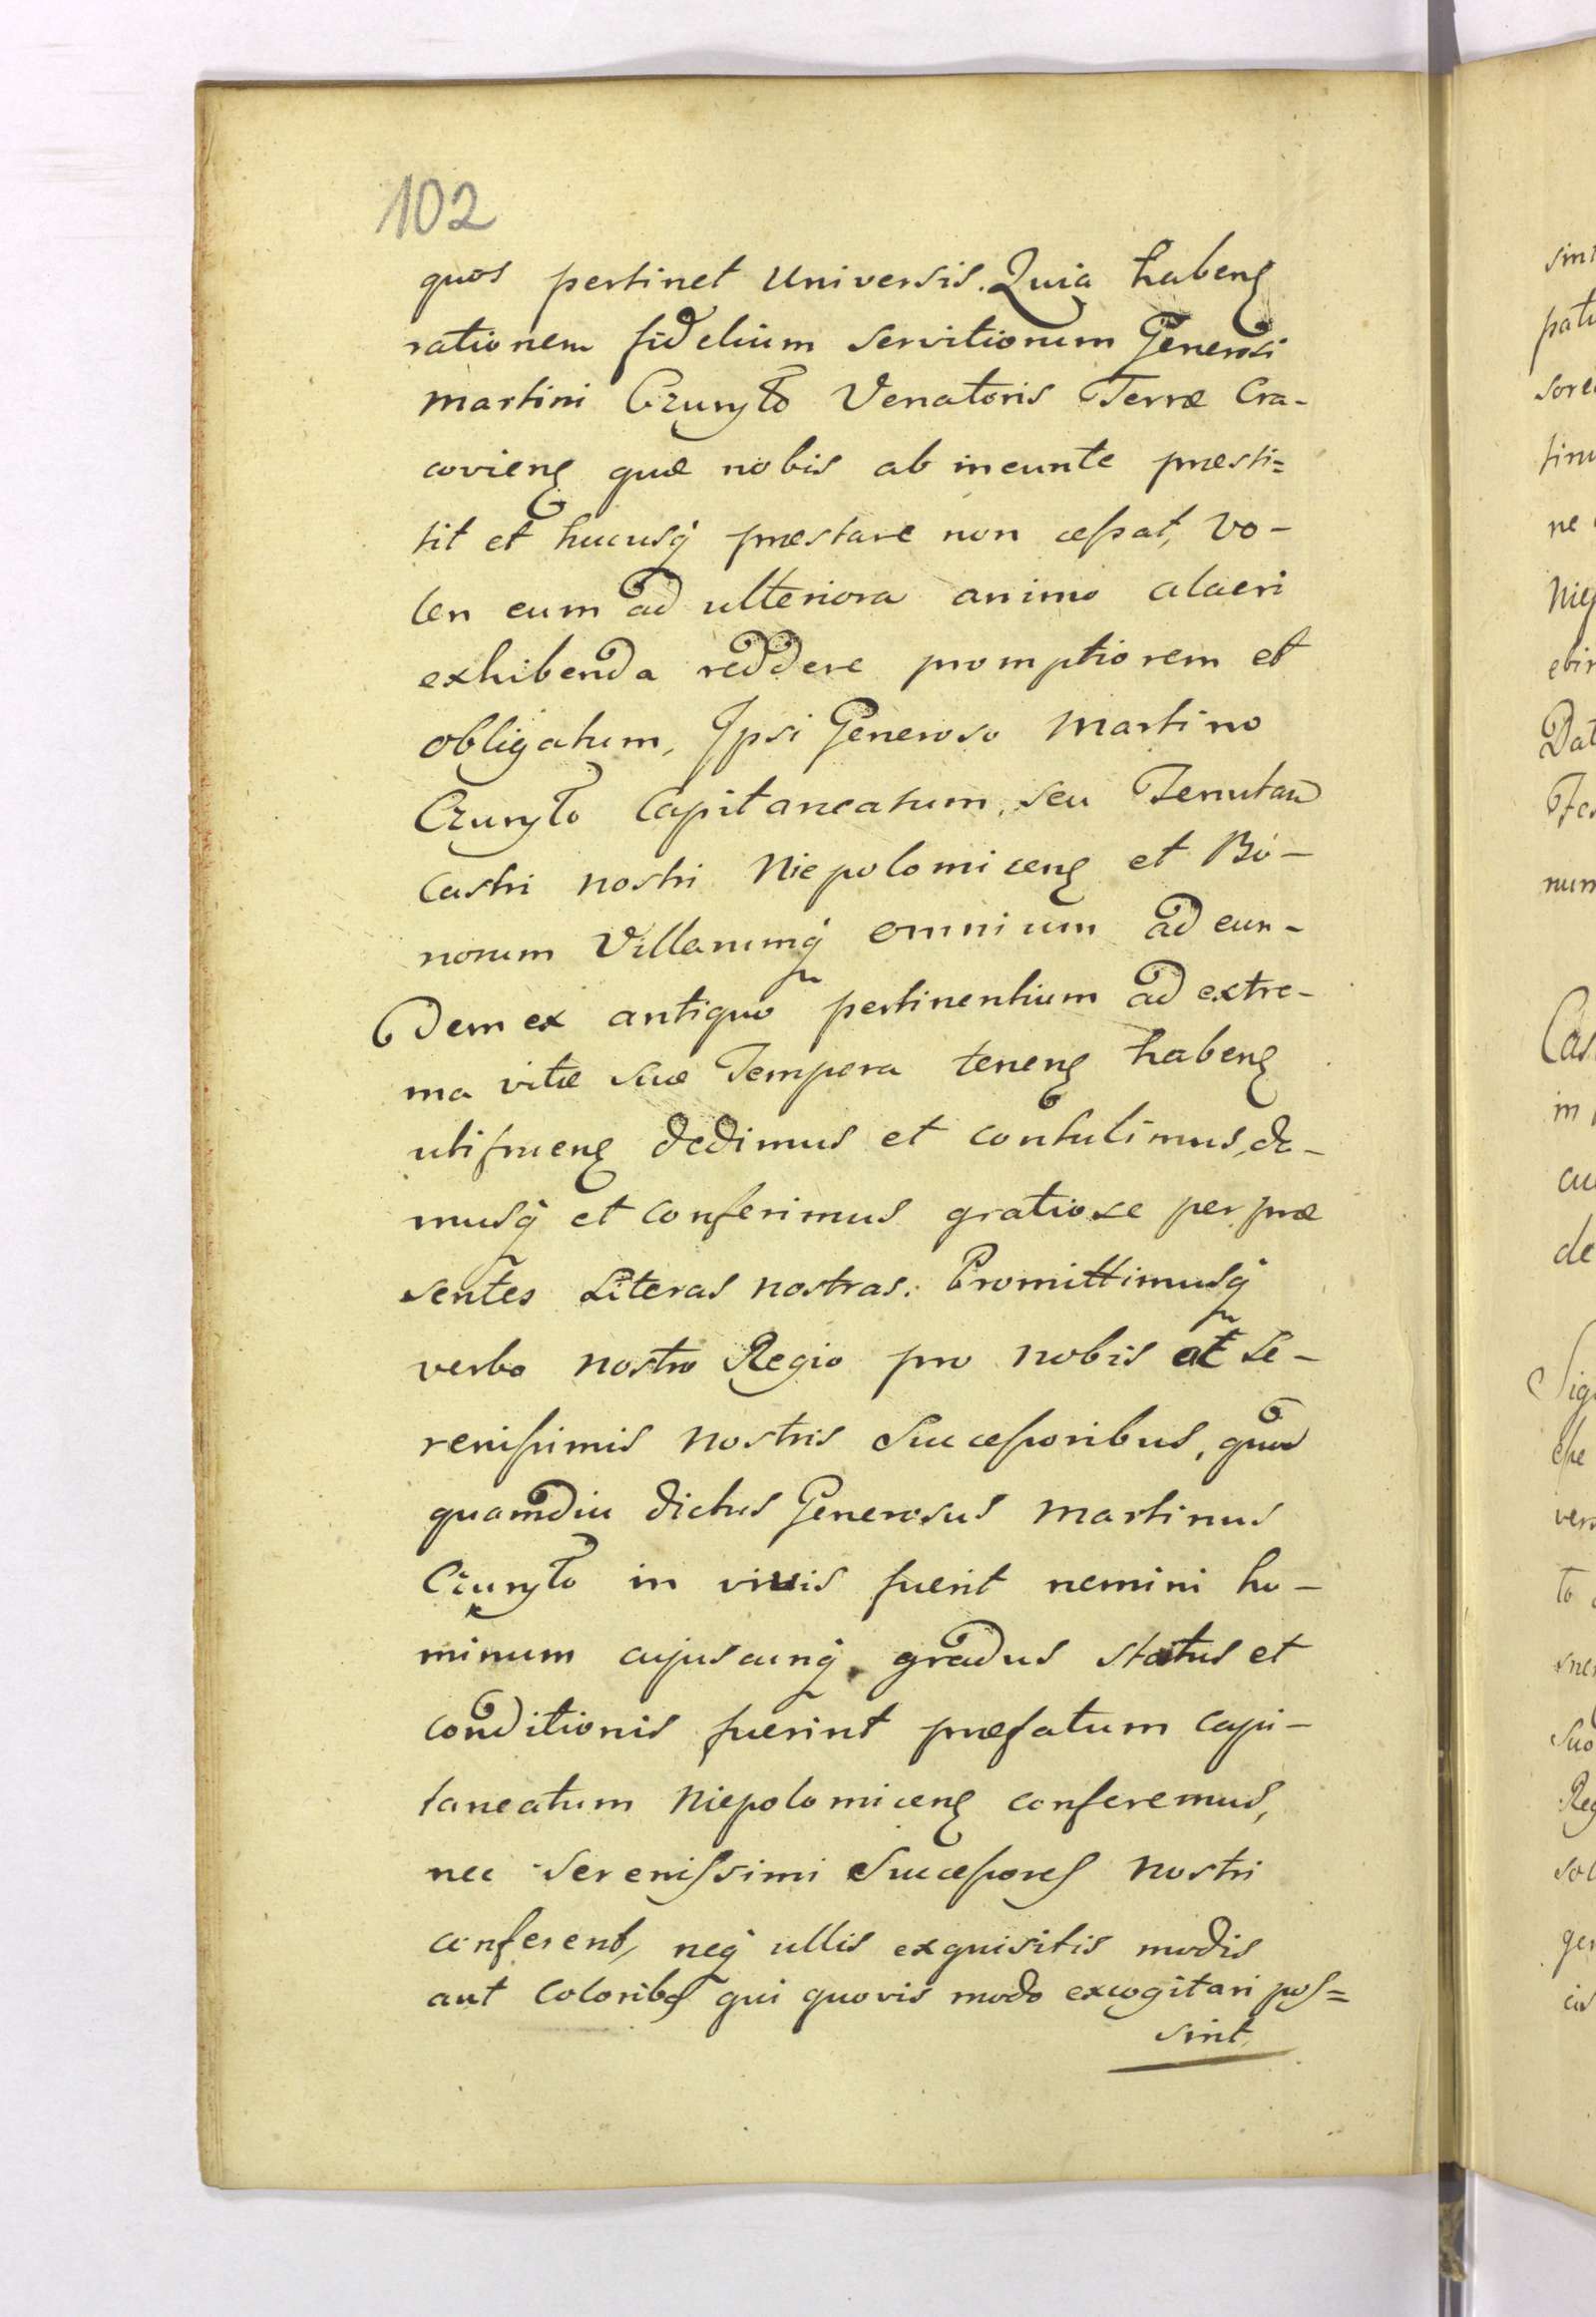 102
quos pertinet Universis. Quia habenʒ
rationem fidelium servitiorum Generosi
Martini Czuryło Venatoris Terræ Cra-
covienʒ quæ nobis ab ineunte præsti=
tit et hucusq́ præstare non ceſsat, vo-
len eum ad ulteriora animo alacri
exhibenda reddere promptiorem et
obligatum, Ipsi Generoso Martino
Czuryło Capitaneatum, seu Tenutam
Castri nostri Niepolomicenʒ et Bo-
norum Villarumq́ omnium ad eun-
dem ex antiquo pertinentium ad extre-
ma vitæ suæ Tempora tenenʒ habenʒ
utifruenʒ dedimus et contulimus, da-
musq́ et conferimus gratiose per præ
sentes Literas nostras. Promittimusq́
verbo nostro Regio pro nobis et Se-
reniſsimis nostris Succeſsoribus, quod
quamdiu dictus Generosus Martinus
Czuryło in vivis fuerit nemini ho-
minum cujuscunq́ gradus status et
conditionis fuerint præfatum Capi-
taneatum Niepolomicenʒ conferemus,
nec Sereniſsimi Succeſsores nostri
conferent, neq́ ullis exquisitis modis
aut coloribꝯ qui quovis modo excogitari poſ=
sint
sint
patu
sore
tinu
ne
Niep
etin
Dat
num
Cas
in
cu
de
Sig
eſse
vers
to
Suo
Reg
sol
gen
cis